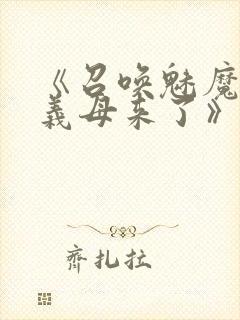 《召唤魅魔
義母来了》
齐扎拉